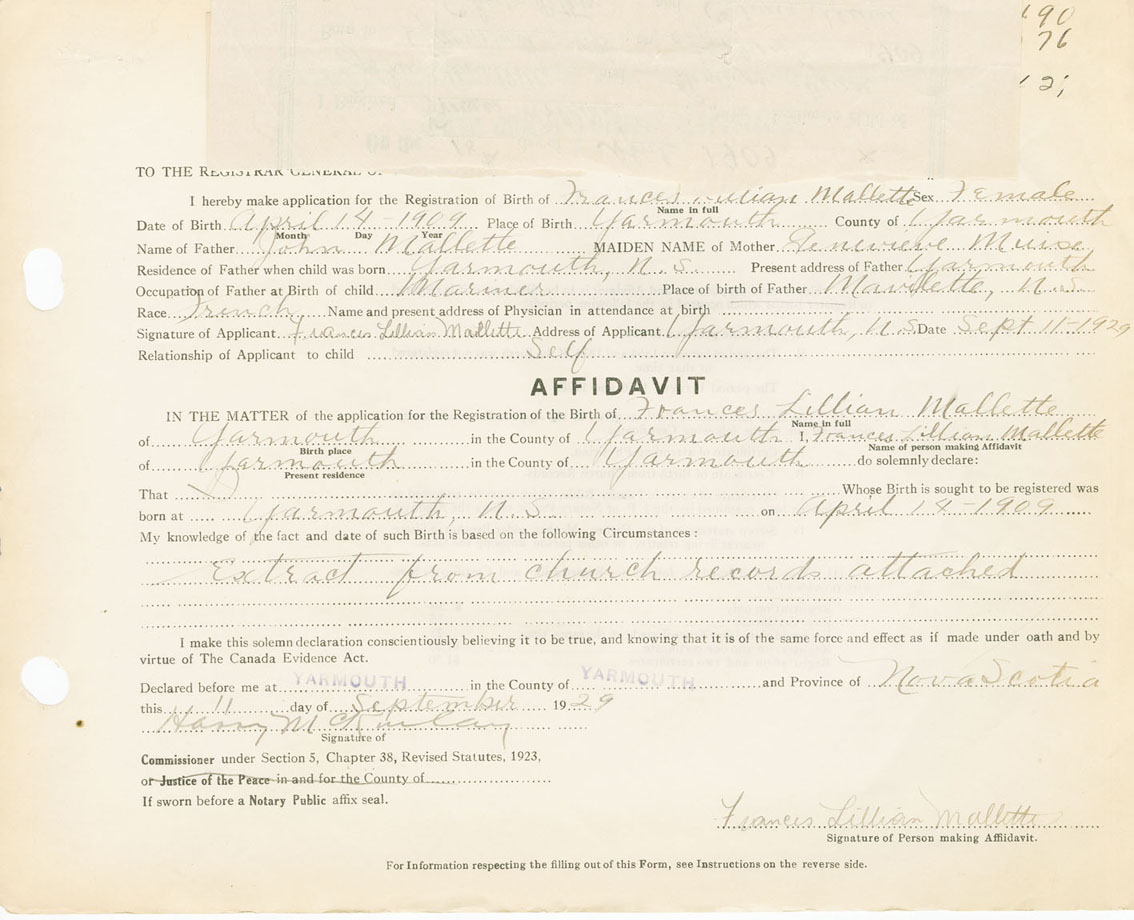 190
76
12;
TO THE REGISTRAR GENERAL O
I hereby make application for the Registration of Birth of Frances Lillian Mallette Sex Female
Name in full
Date of Birth April 14-1909 Place of Birth Yarmouth County of Yarmouth
Month Day Year
Name of Father John Mallette MAIDEN NAME of Mother Genevieve Muise
Residence of Father when child was born Yarmouth, N.S. Present address of Father Yarmouth
Occupation of Father at Birth of child Mariner Place of birth of Father Mavilette, N.S.
Race French Name and present address of Physician in attendance at birth
Signature of Applicant Frances Lillian Mallette Address of Applicant Yarmouth, N.S. Date Sept 11-1929
Relationship of Applicant to child Self
AFFIDAVIT
IN THE MATTER of the application for the Registration of the Birth of Frances Lillian Mallette
Name in full
of Yarmouth in the County of Yarmouth I, Frances Lillian Mallette
Birth place Name of person making Affidavit
of Yarmouth in the County of Yarmouth do solemnly declare:
Present residence
That I Whose Birth is sought to be registered was
born at Yarmouth, N.S. on April 14-1909
My knowledge of the fact and date of such Birth is based on the following Circumstances :
Extract from church records attached
I make this solemn declaration conscientiously believing it to be true, and knowing that it is of the same force and effect as if made under oath and by
virtue of The Canada Evidence Act.
Declared before me at YARMOUTH in the County of YARMOUTH and Province of Nova Scotia
this 11 day of September 1929
Harry McKinlay
Signature of
Commissioner under Section 5, Chapter 38, Revised Statutes, 1923,
or Justice of the Peace in and for the County of
If sworn before a Notary Public affix seal.
Frances Lillian Mallette
Signature of Person making Affidavit.
For Information respecting the filling out of this Form, see Instructions on the reverse side.